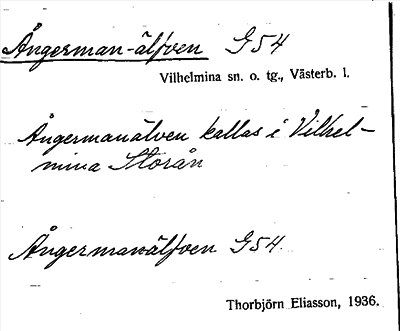 Ångerman-älfven G54
Vilhelmina sn. o. tg., Västerb. l.
Ångermanälven kallas i Vilhel-
mina Storån
Ångermanälfven G54.
Thorbjörn Eliasson, 1936.